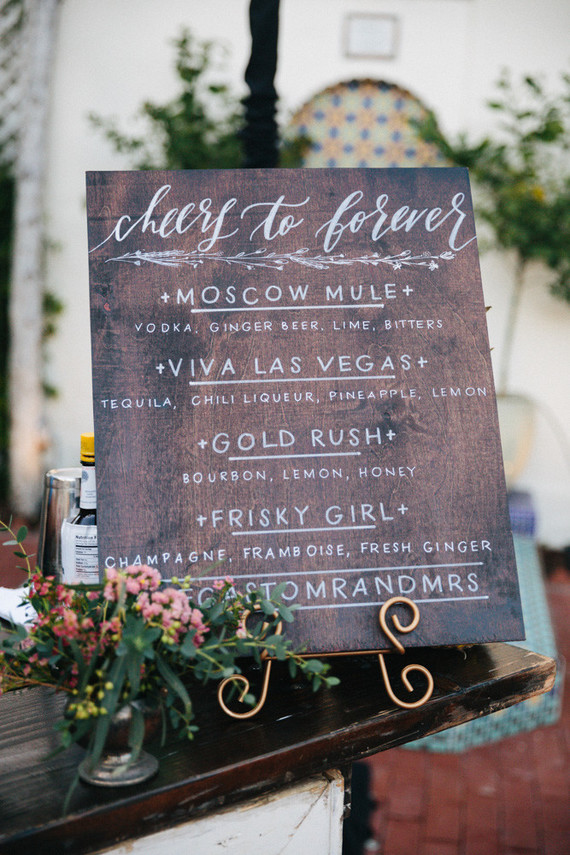 cheers to forever
+MOSCOW MULE+
VODKA, GINGER BEER, LIME, BITTERS
+VIVA LAS VEGAS+
TEQUILA, CHILI LIQUEUR, PINEAPPLE, LEMON
+GOLD RUSH+
BOURBON, LEMON, HONEY
+FRISKY GIRL+
CHAMPAGNE, FRAMBOISE, FRESH GINGER